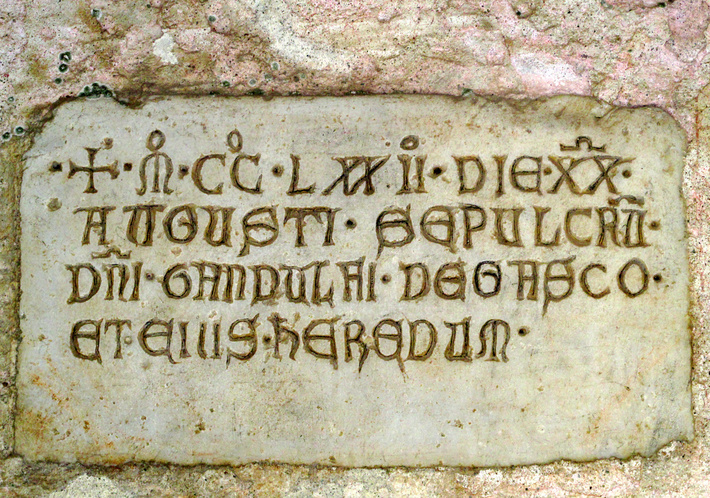 · + · M̊ · CC̊ · LXXXII̊ · DIE · XX̄ ·
AUGUSTI · SEPULCRŪ ·
DN̄I · GANDULFI · DEGASCO ·
ET · EIUS · HEREDUM ·